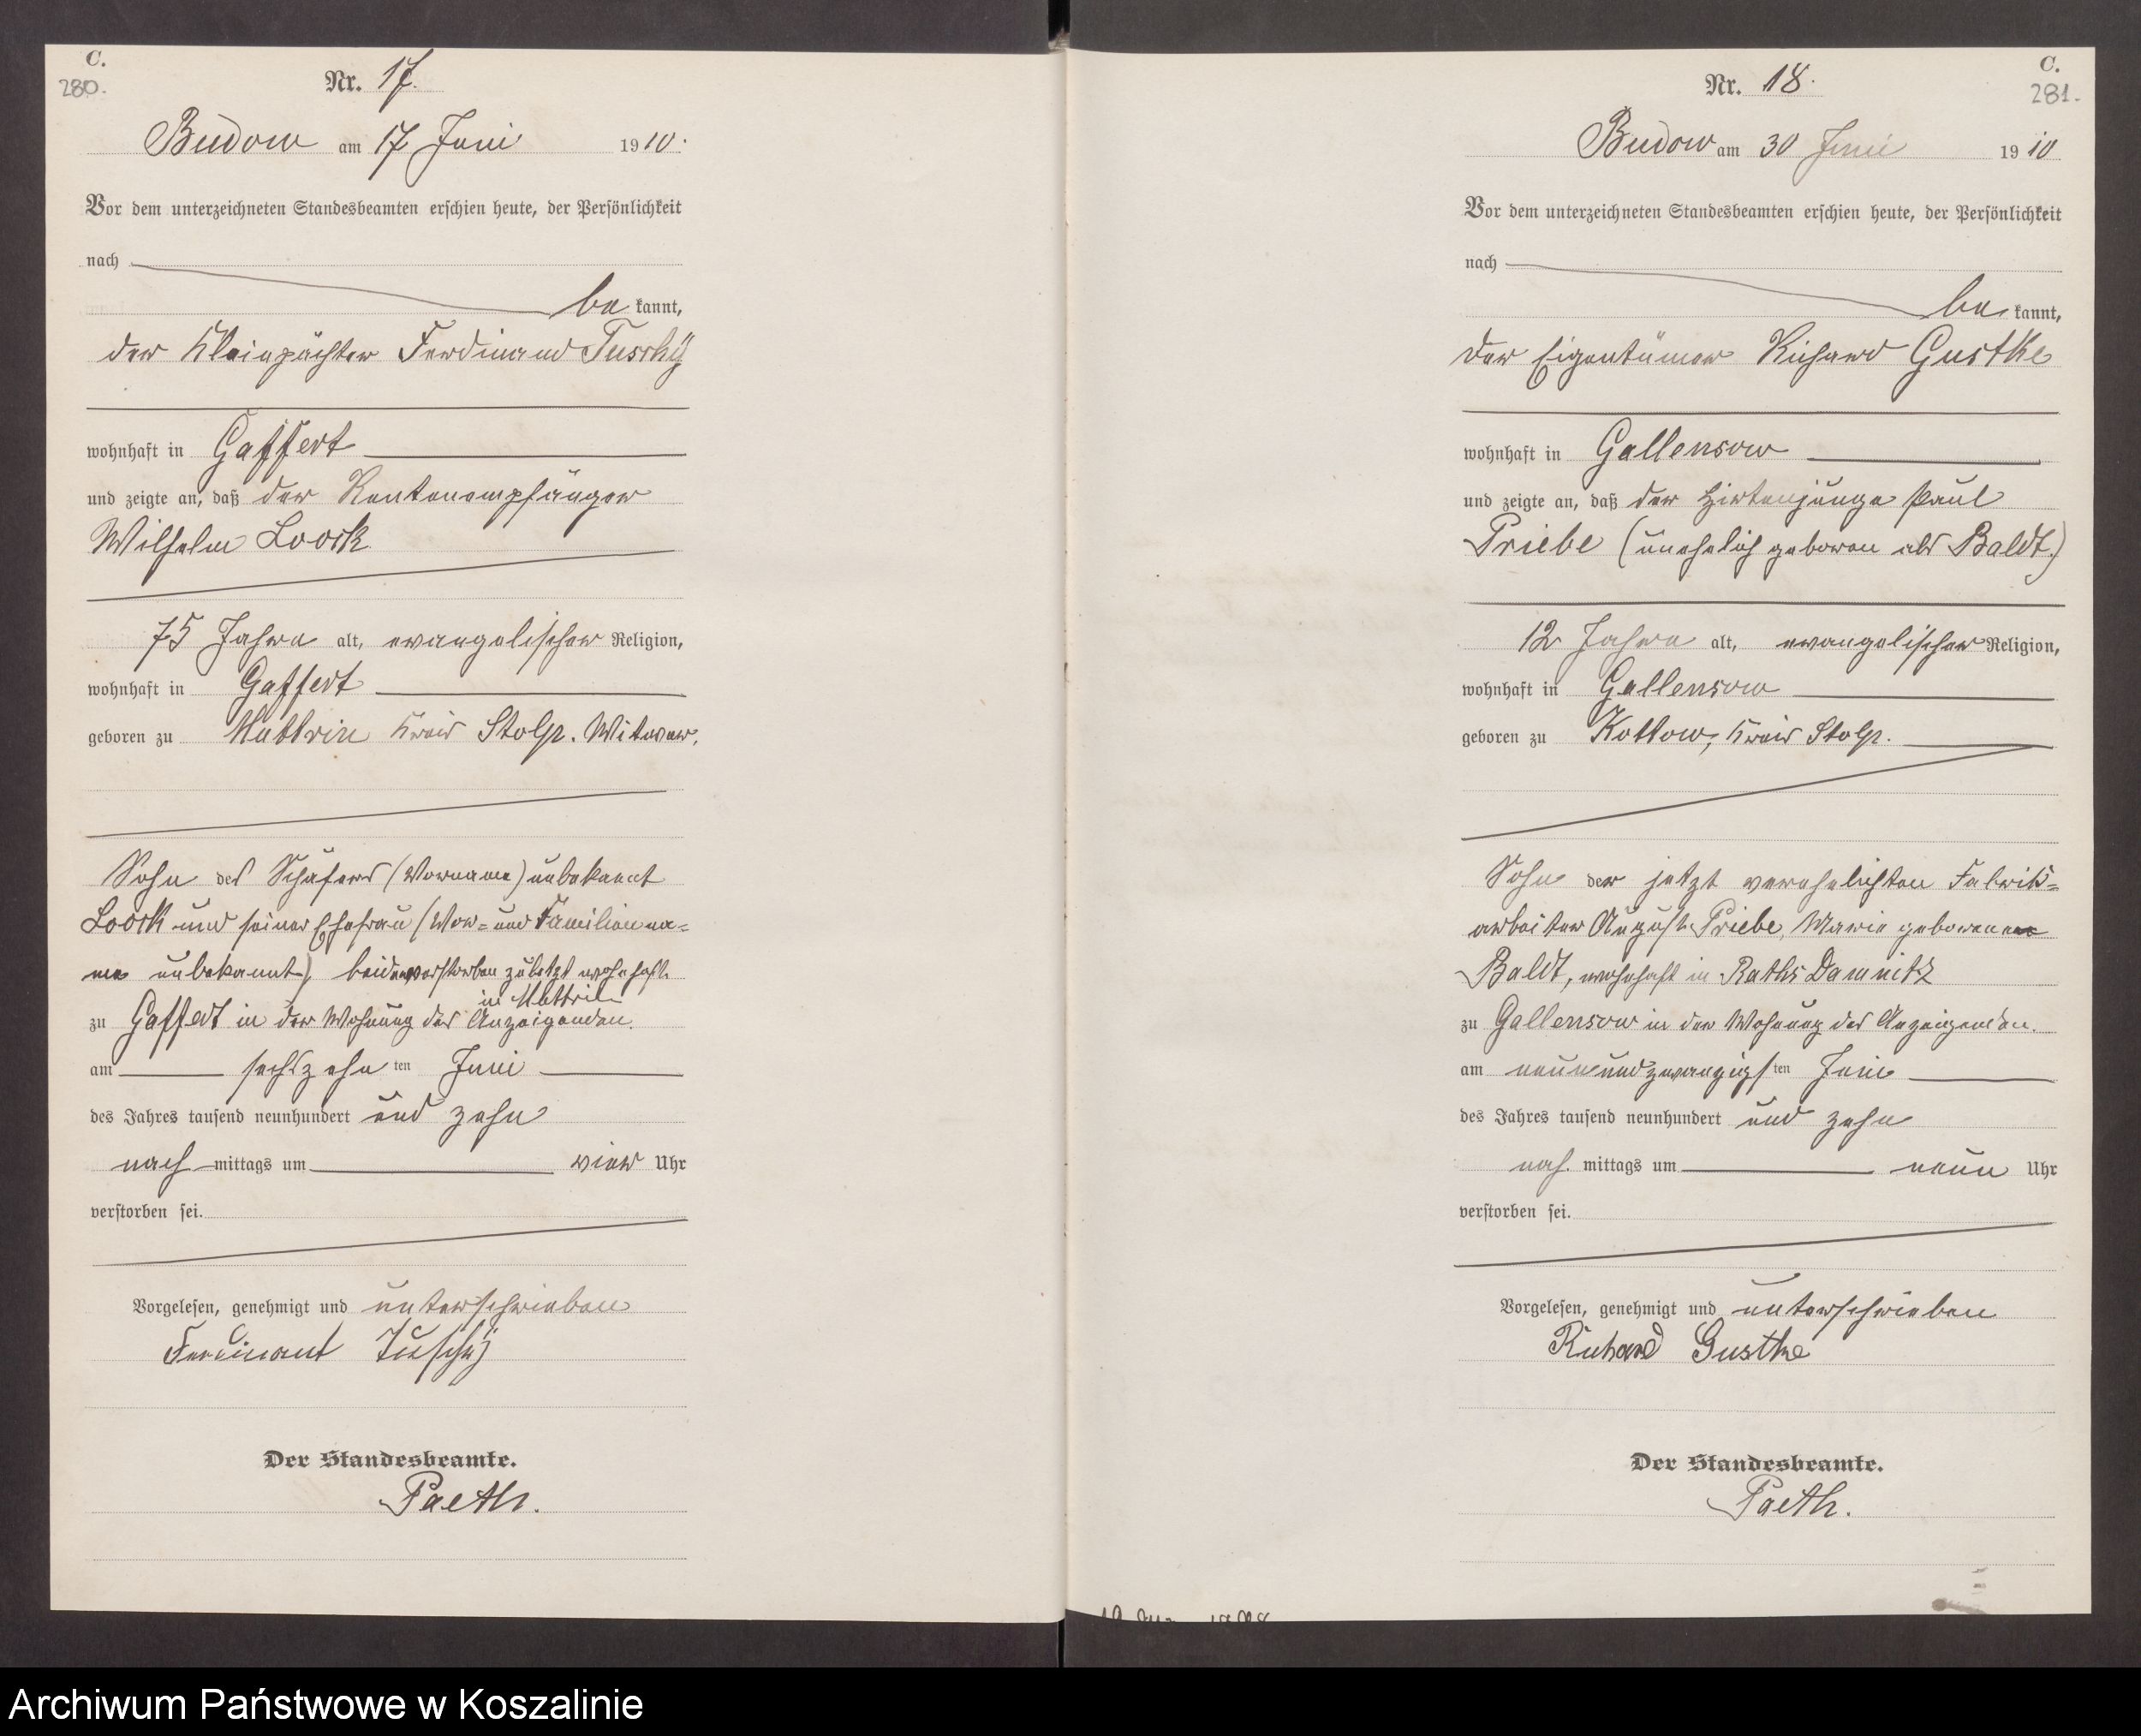 C.
280.
Nr. 17.
Budow am 17 Juni 1910.
Vor dem unterzeichneten Standesbeamten erschien heute, der Persönlichkeit
nach
be kannt,
der Kleinpächter Ferdinand Tuschy
wohnhaft in Gaffert
und zeigte an, daß der Rentenempfänger
Wilhelm Loock
75 Jahre alt, evangelischer Religion,
wohnhaft in Gaffert
geboren zu Muttrin Kreis Stolp. Witwer.
Sohn des Schäfers (Vorname) unbekannt
Loock und seiner Ehefrau (Vor- und Familienna-
me unbekannt), beide verstorben zuletzt wohnhaft
in Muttrin
zu Gaffert in der Wohnung des Anzeigenden.
am sechszehn ten Juni
des Jahres tausend neunhundert und zehn
nach mittags um vier Uhr
verstorben sei.
Vorgelesen, genehmigt und unterschrieben
Ferdinant Tuschy
Der Standesbeamte.
Paeth.
C.
281.
Nr. 18.
Budow am 30 Juni 1910
Vor dem unterzeichneten Standesbeamten erschien heute, der Persönlichkeit
nach
be kannt,
der Eigentümer Richard Gustke
wohnhaft in Gallensow
und zeigte an, daß der Hirtenjunge Paul
Priebe (unehelich geboren als Baldt.)
12 Jahre alt, evangelischer Religion,
wohnhaft in Gallensow
geboren zu Kottow, Kreis Stolp.
Sohn der jetzt verehelichten Fabrik-
arbeiter August Priebe, Marie geborenen
Baldt, wohnhaft in Raths Damnitz
zu Gallensow in der Wohnung des Anzeigenden.
am neunundzwanzigs ten Juni
des Jahres tausend neunhundert und zehn
nach. mittags um neun Uhr
verstorben sei.
Vorgelesen, genehmigt und unterschrieben
Richard Gustke
Der Standesbeamte.
Paeth.
Archiwum Państwowe w Koszalinie